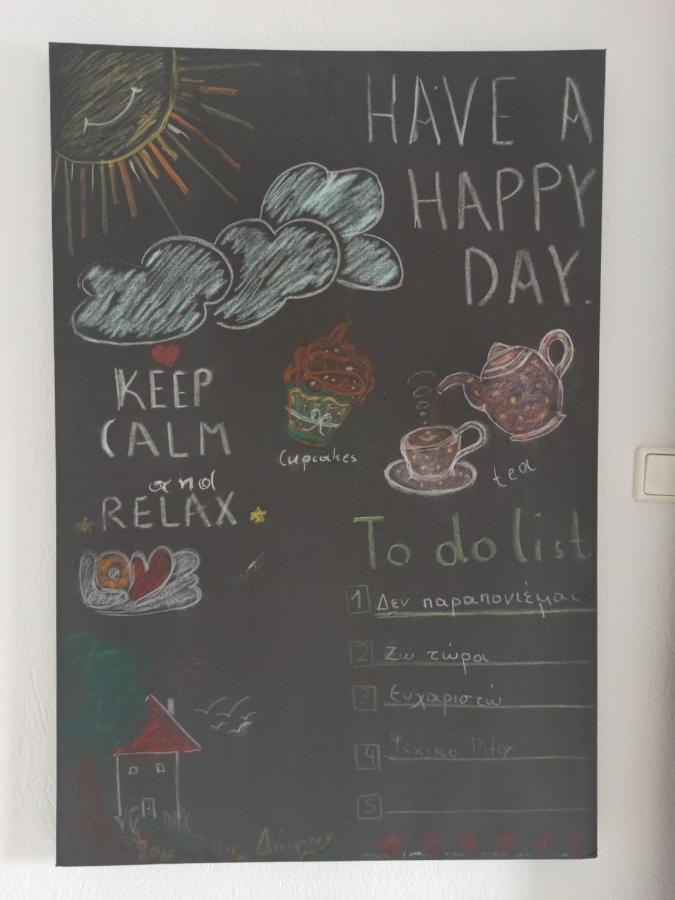 HAVE A
HAPPY
DAY.
KEEP
CALM
and
RELAX
Cupcakes
tea
LOVE
To do list
1 Δεν παραπονιέμαι
2 Ζω τώρα
3 Ευχαριστώ
4
5